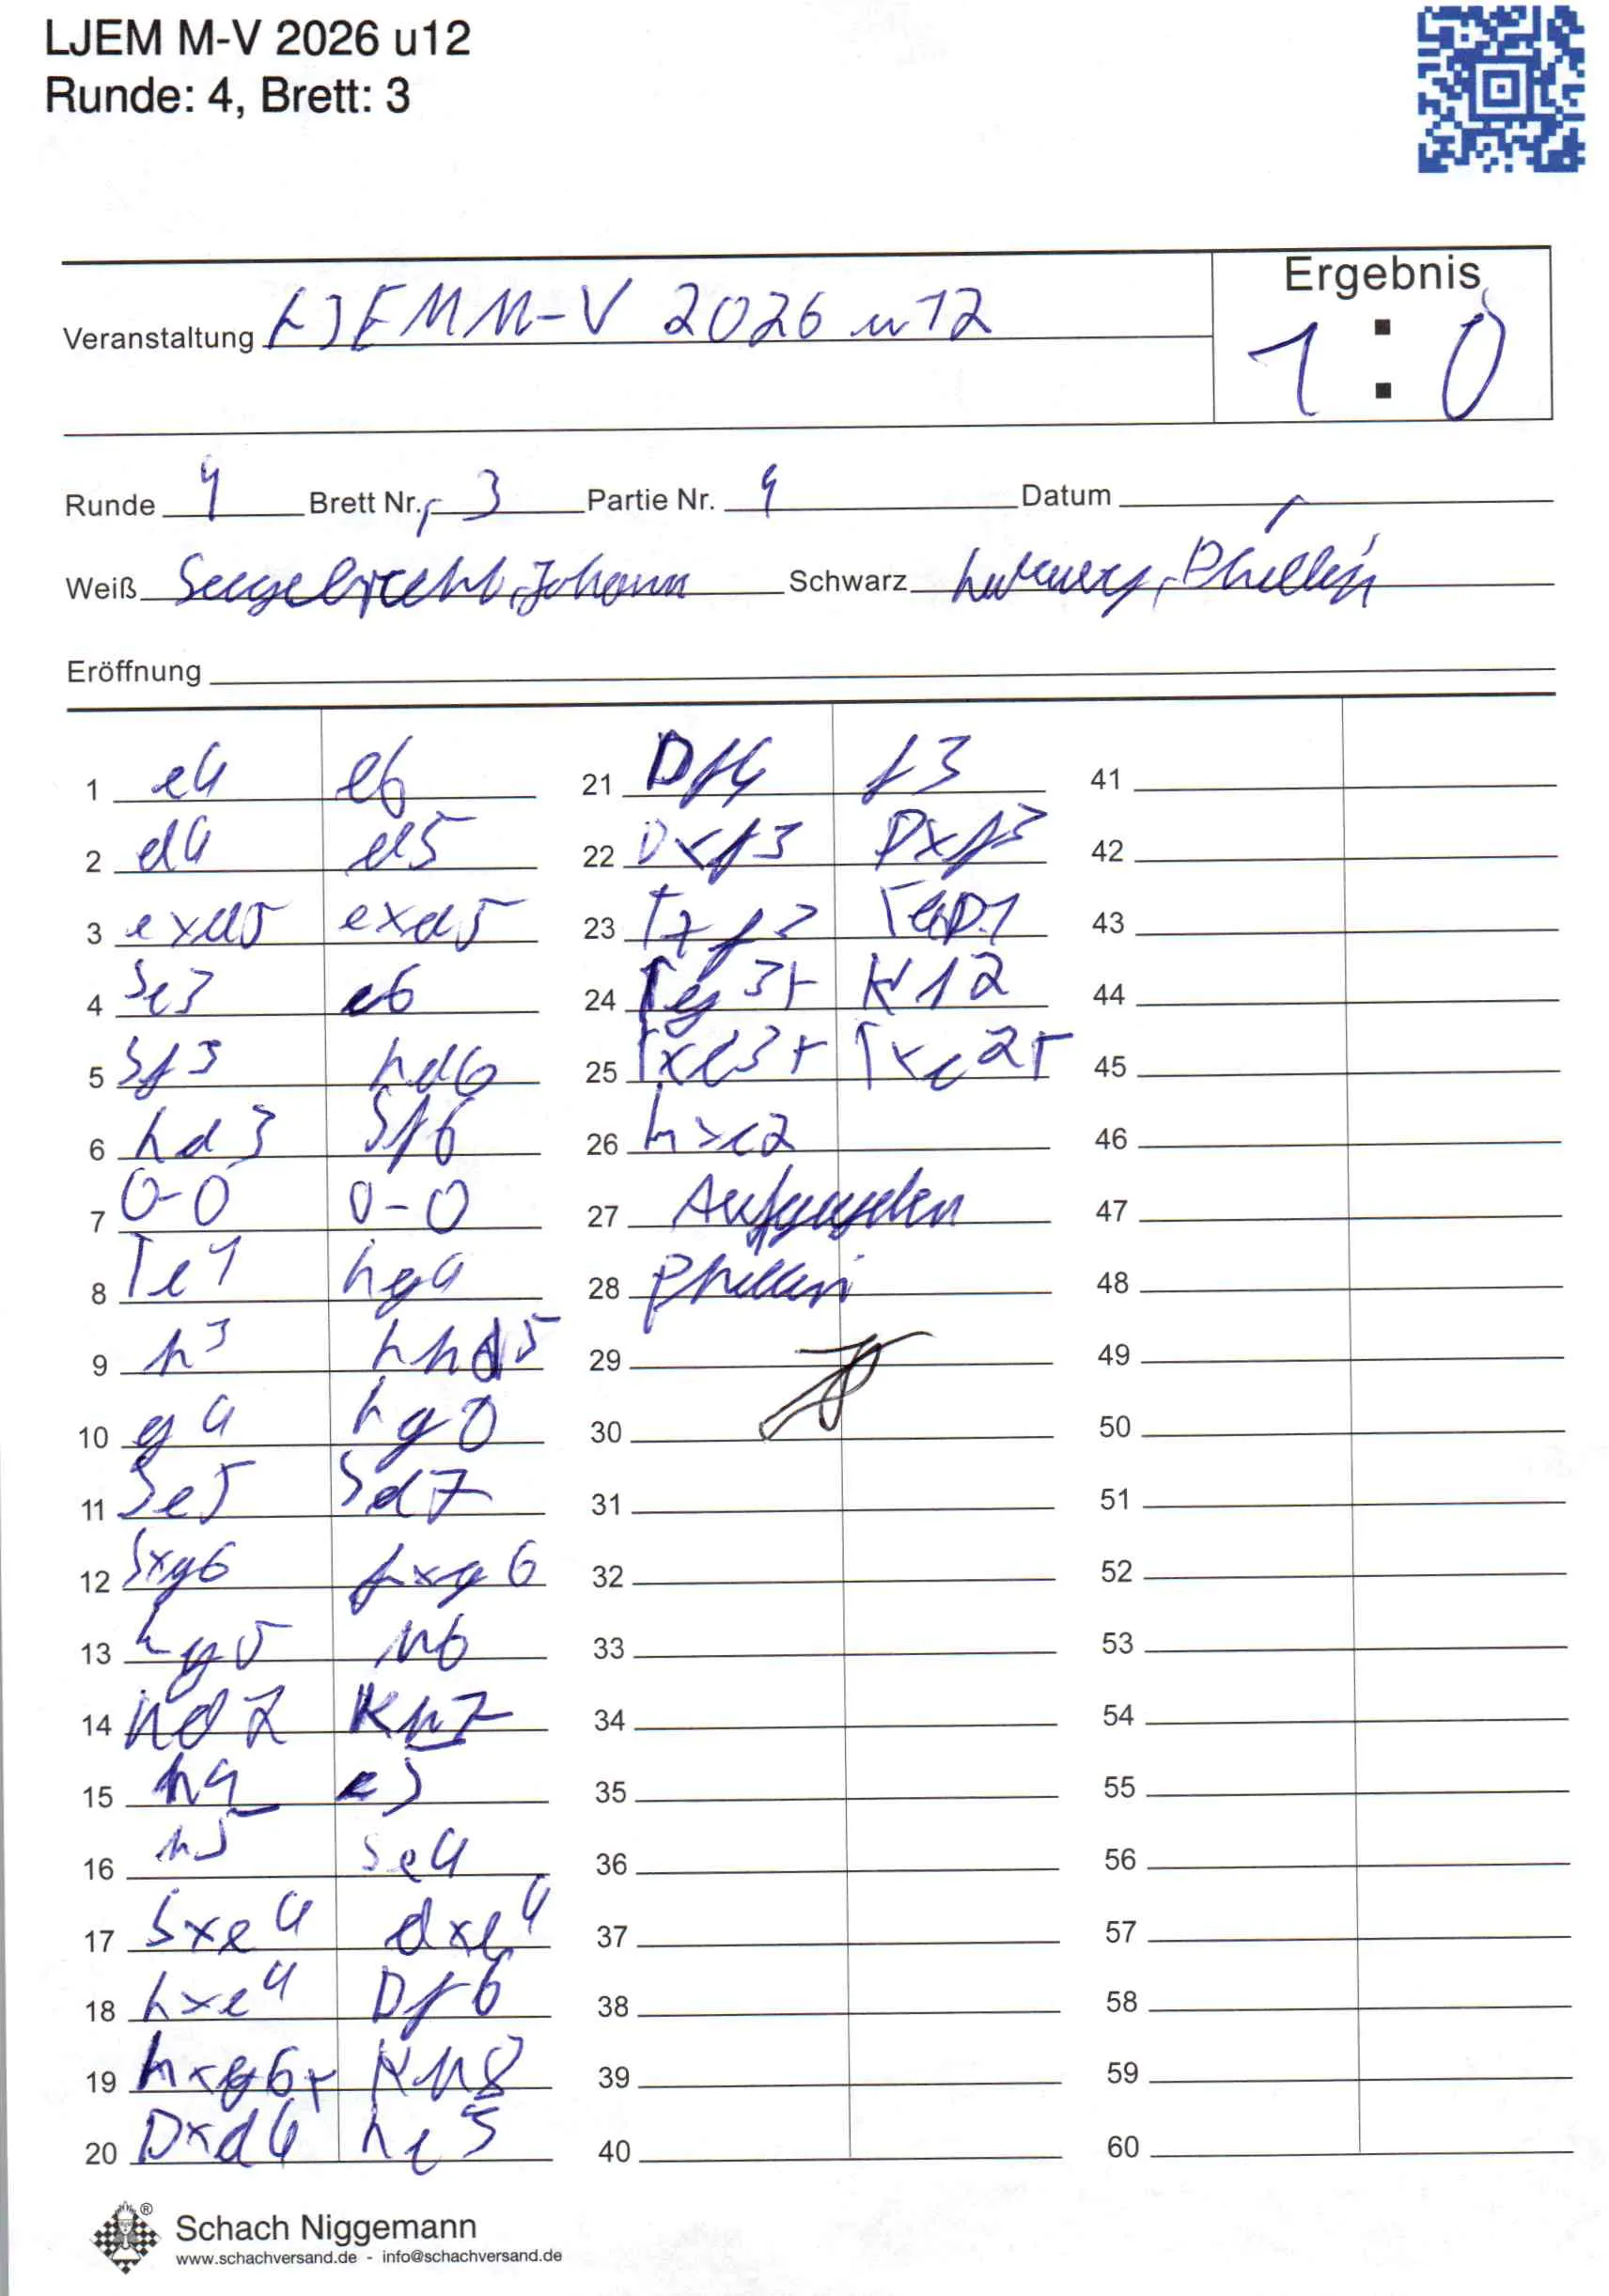 LJEM M-V 2026 u12
Runde: 4, Brett: 3
Ergebnis
Veranstaltung LJEM M-V 2026 u12
1 : 0
Runde 4 Brett Nr. 3 Partie Nr. 4 Datum
Weiß Johann Schwarz Phillip
Eröffnung
1 e4 e6 21 Df4 f3 41
2 d4 d5 22 Dxf3 Dxf3 42
3 exd5 exd5 23 Txf3 43
4 Sc3 c6 24 Teg3+ 44
5 Sf3 Ld6 25 Txe3+ Txc2+ 45
6 Ld3 Sf6 26 Lxc2 46
7 0-0 0-0 27 Aufgegeben 47
8 Te1 Lg4 28 Phillip 48
9 h3 Lh5 29 49
10 g4 Lg6 30 50
11 Se5 Sd7 31 51
12 Sxg6 fxg6 32 52
13 Lg5 h6 33 53
14 Kh7 34 54
15 h4 35 55
16 h5 Se4 36 56
17 Sxe4 dxe4 37 57
18 Lxe4 Df6 38 58
19 hxg6+ Kh8 39 59
20 Dxd4 Le5 40 60
Schach Niggemann
www.schachversand.de - info@schachversand.de